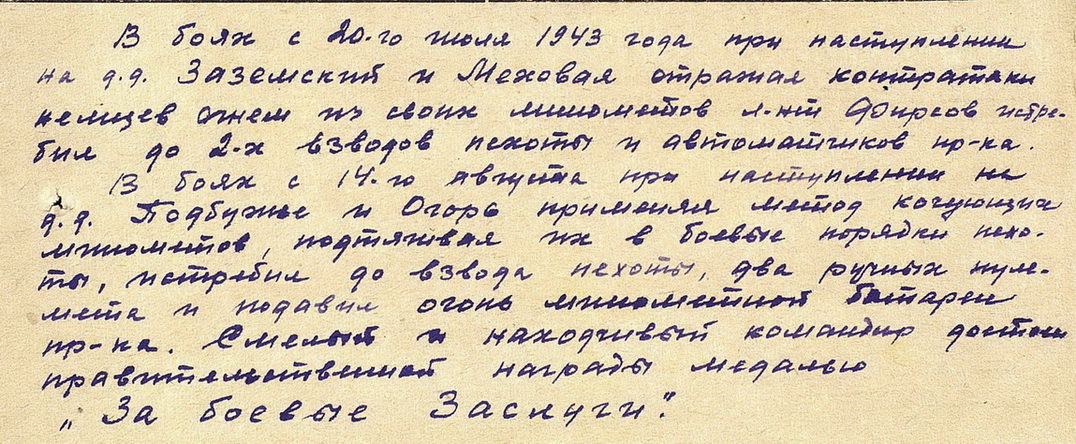 В боях с 20-го июля 1943 года при наступлении
на д.д. Заземский и Меховая отражая контратаки
немцев огнем из своих минометов л-нт Фирсов истре-
бил до 2-х взводов пехоты и автоматчиков пр-ка.
В боях с 14-го августа при наступлении на
д.д. Подбужье и Огорь применяя метод кочующих
минометов, подтягивая их в боевые порядки пехо-
ты, истребил до взвода пехоты, два ручных пуле-
мета и подавил огонь минометной батареи
пр-ка. Смелый и находчивый командир достоин
правительственной награды медалью
„За боевые Заслуги".